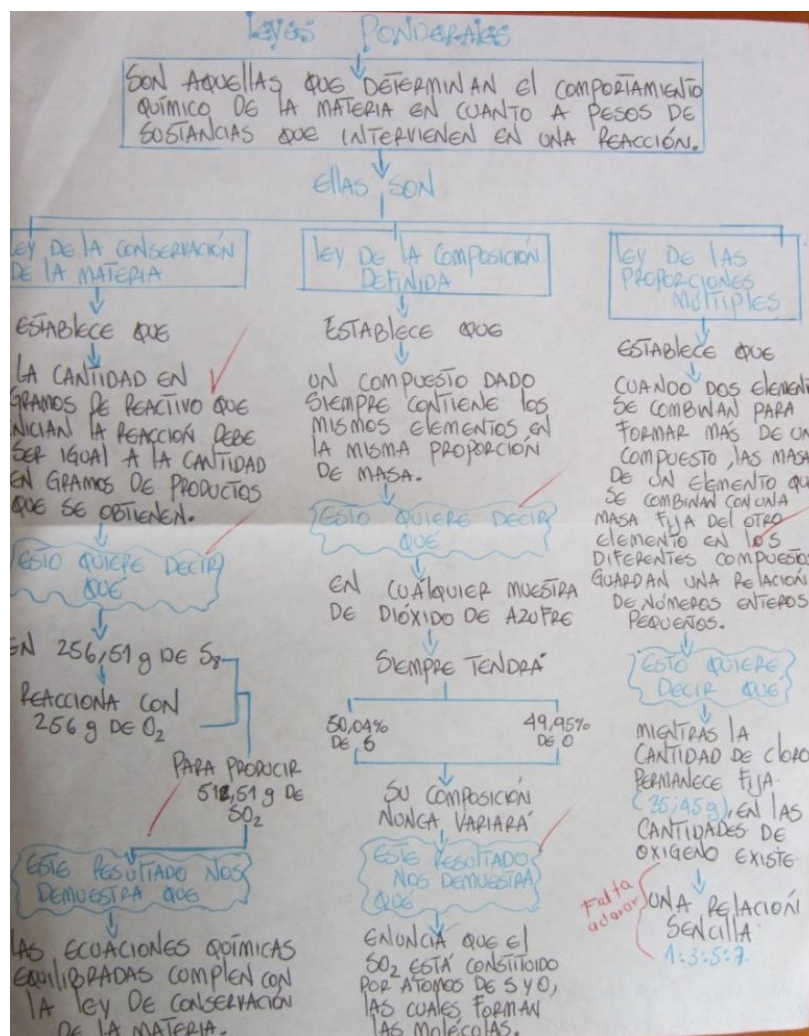 LEYES PONDERALES
SON AQUELLAS QUE DETERMINAN El COMPORTAMIENTO
QUÍMICO DE LA MATERIA EN CUANTO A PESOS DE
SUSTANCIAS QUE INTERVIENEN EN UNA REACCIÓN.
EllAS SON
LEY DE LA CONSERVACIÓN
DE LA MATERIA
ESTABLECE QUE
LA CANTIDAD EN
GRAMOS DE REACTIVO QUE
INICIAN LA REACCIÓN DEBE
SER IGUAL A LA CANTIDAD
EN GRAMOS DE PRODUCTOS
QUE SE OBTIENEN.
ESTO QUIERE DECIR
QUE
EN 256,51 g DE S8
REACCIONA CON
256 g DE O2
PARA PRODUCIR
512,51 g DE
SO2
ESTE RESULTADO NOS
DEMUESTRA QUE
LAS ECUACIONES QUÍMICAS
EQUILIBRADAS CUMPLEN CON
LA LEY DE CONSERVACIÓN
DE LA MATERIA.
LEY DE LA COMPOSICIÓN
DEFINIDA
ESTABLECE QUE
UN COMPUESTO DADO
SIEMPRE CONTIENE LOS
MISMOS ELEMENTOS EN
LA MISMA PROPORCIÓN
DE MASA.
ESTO QUIERE DECIR
QUE
EN CUÁLQUIER MUESTRA
DE DIÓXIDO DE AZUFRE
SIEMPRE TENDRÁ
50,04%
DE S
49,95%
DE O
SU COMPOSICIÓN
NUNCA VARIARÁ
ESTE RESULTADO
NOS DEMUESTRA
QUE
ENUNCIA QUE El
SO2 ESTÁ CONSTITUIDO
POR ÁTOMOS DE S Y O,
LAS CUALES FORMAN
LAS MOLÉCULAS.
LEY DE LAS
PROPORCIONES
MÚLTIPLES
ESTABLECE QUE
CUANDO DOS ELEMENT
SE COMBINAN PARA
FORMAR MÁS DE UN
COMPUESTO, LAS MASA
DE UN ELEMENTO QUE
SE COMBINAN CON UNA
MASA FIJA DEL OTRO
ELEMENTO EN LOS
DIFERENTES COMPUESTOS
GUARDAN UNA RELACIÓN
DE NÚMEROS ENTEROS
PEQUEÑOS.
ESTO QUIERE
DECIR QUE
MIENTRAS LA
CANTIDAD DE CLORO
PERMANECE FIJA.
(35,45g), EN LAS
CANTIDADES DE
OXIGENO EXISTE
UNA RELACIÓN
SENCILLA
1:3:5:7.
Falta
aclarar